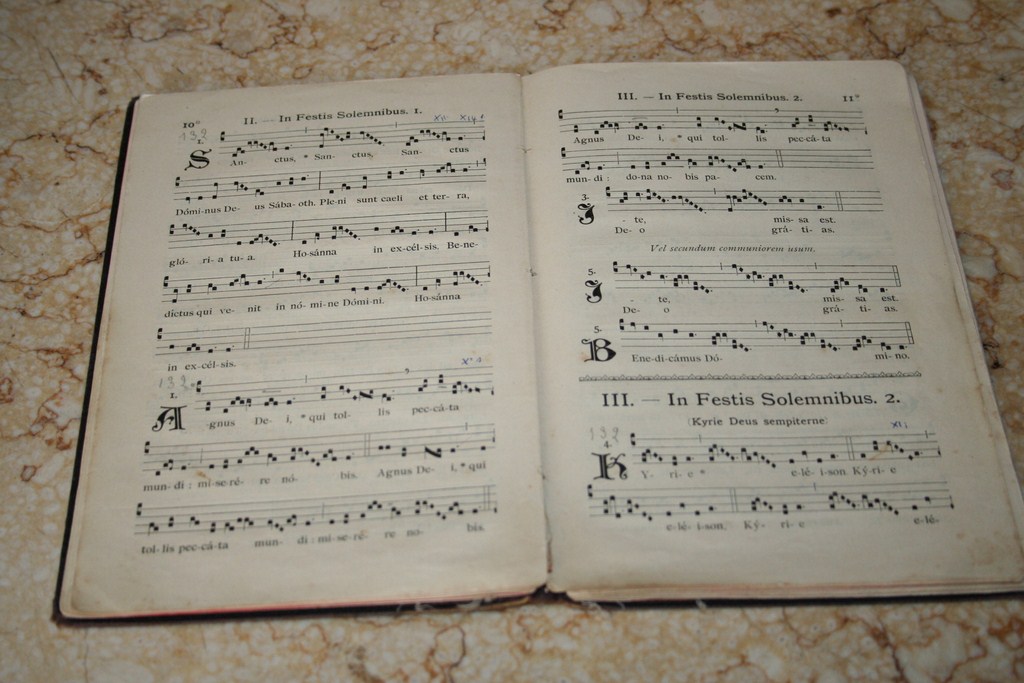 10*
II. — In Festis Solemnibus. 1.
132
1.
SAn- ctus, * San- ctus, San- ctus
Dómi-nus De- us Sába- oth. Ple-ni sunt caeli et ter- ra,
gló- ri- a tu- a. Ho-sánna in ex-cél- sis. Be-ne-
díctus qui ve- nit in nó- mi- ne Dómi- ni. Ho-sánna
in ex-cél- sis.
132
1.
A-gnus De- i, * qui tol- lis pec-cá-ta
mun- di : mi-se-ré- re nó- bis. Agnus De- i, * qui
tol- lis pec-cá-ta mun- di : mi-se-ré- re no- bis.
III. — In Festis Solemnibus. 2. 11*
Agnus De- i, * qui tol- lis pec-cá-ta
mun- di : do-na no- bis pa- cem.
I- te, mis- sa est.
De- o grá- ti- as.
Vel secundum communiorem usum.
5.
I- te, mis- sa est.
De- o grá- ti- as.
5.
BEne-di-cámus Dó- mi- no.
III. — In Festis Solemnibus. 2.
(Kyrie Deus sempiterne)
132
4.
KY- ri- e * e-lé- i-son. Ký-ri- e
e-lé- i-son. Ký- ri- e e-lé-